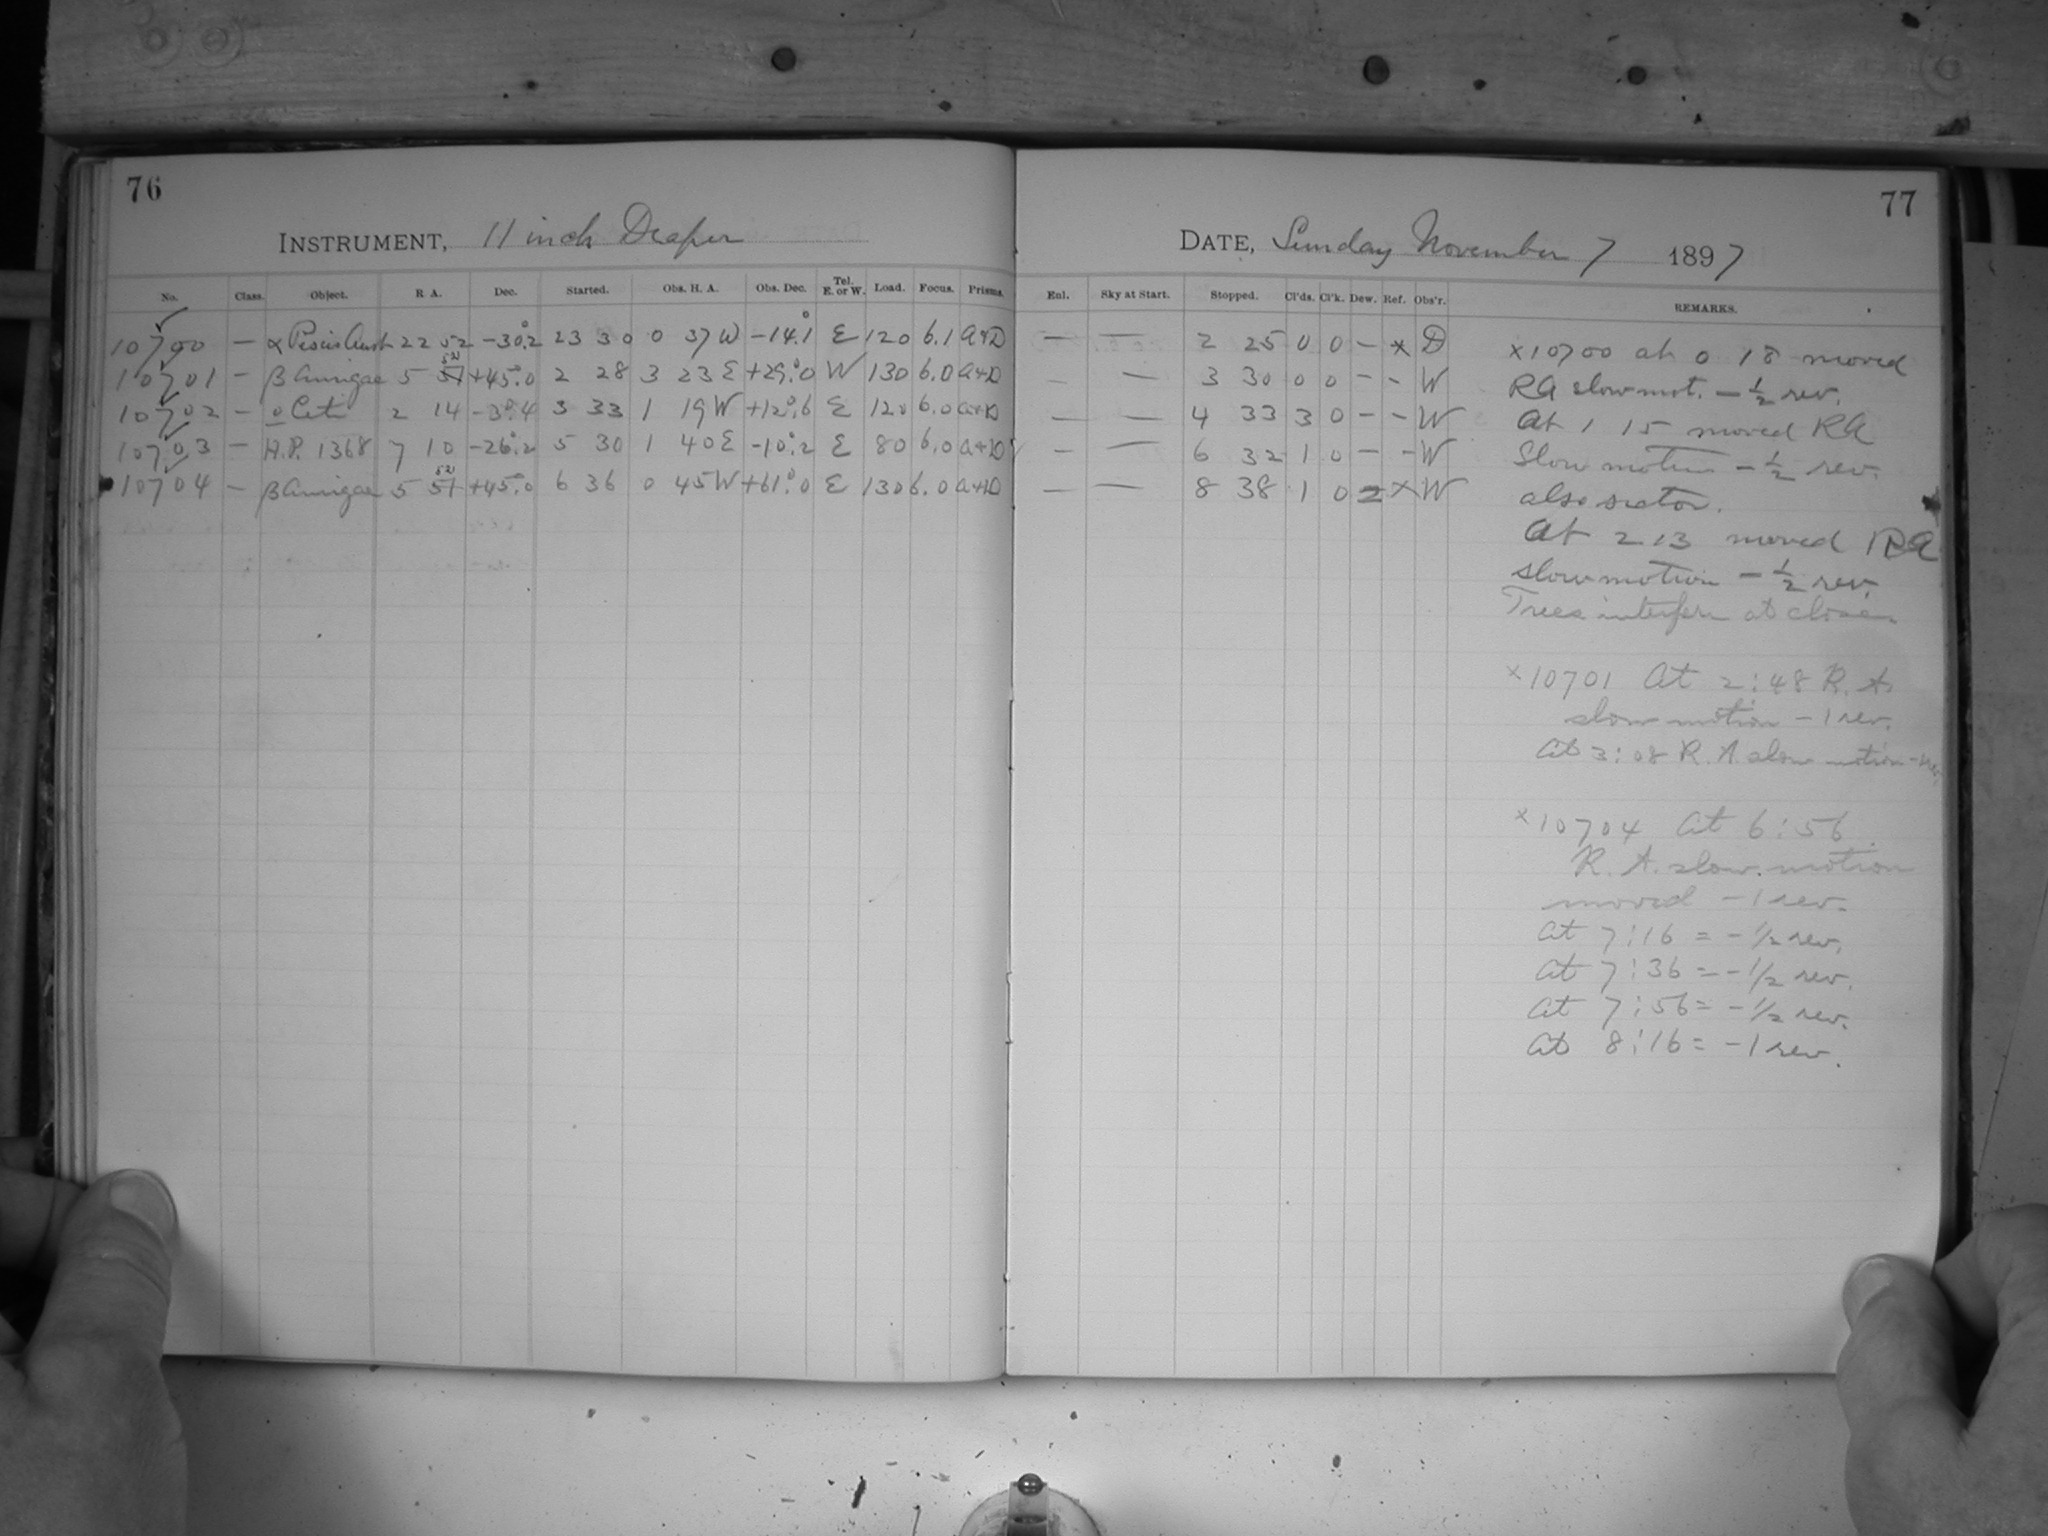 76
INSTRUMENT, 11 inch Draper
No. Class. Object. R A. Dec. Started. Obs. H. A. Obs. Dec. Tel. E. or W. Load. Focus. Prisms.
10700 — α Piscis Aust 22 52 -30°.2 23 30 0 37 W -14°.1 E 120 6.1 a+D
10701 — β Aurigae 5 51 52 +45°.0 2 28 3 23 E +29°.0 W 130 6.0 a+D
10702 — o Ceti 2 14 -3°.4 3 33 1 19 W +12°.6 E 120 6.0 a+D
10703 — H.P. 1368 7 10 -26°.2 5 30 1 40 E -10°.2 E 80 6.0 a+D
10704 — β Aurigae 5 51 52 +45°.0 6 36 0 45 W +61°.0 E 130 6.0 a+D
77
DATE, Sunday November 7 1897
Enl. Sky at Start. Stopped. Cl'ds. Cl'k. Dew. Ref. Obs'r. REMARKS.
— — 2 25 0 0 — x D
— — 3 30 0 0 — - W
— — 4 33 3 0 — - W
— — 6 32 1 0 — - W
— — 8 38 1 0 2 x W
x10700 at 0 18 moved
RA slow mot. — 1/2 rev.
At 1 15 moved RA
Slow motion — 1/2 rev.
also sector.
At 2 13 moved RA
slow motion — 1/2 rev.
Trees interfere at close.
x10701 At 2:48 R. A.
slow motion — 1 rev.
At 3:08 R. A. slow motion
x10704 At 6:56
R. A. slow. motion
moved — 1 rev.
At 7:16 = - 1/2 rev.
At 7:36 = - 1/2 rev.
At 7:56 = - 1/2 rev.
At 8:16 = - 1 rev.